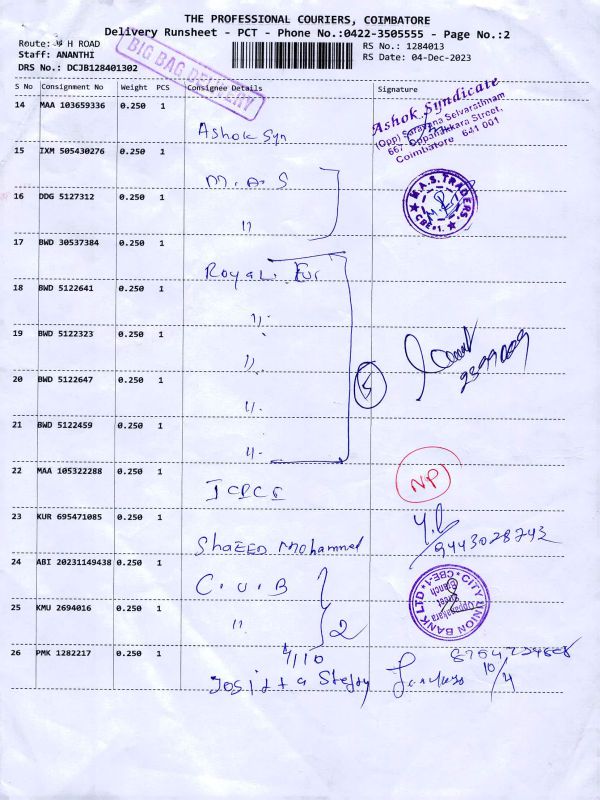 THE PROFESSIONAL COURIERS, COIMBATORE
Delivery Runsheet - PCT - Phone No.:0422-3505555 - Page No.:2
Route: H ROAD
RS No.: 1284013
Staff: ANANTHI
RS Date: 04-Dec-2023
DRS No.: DCJB128401302
BIG BAG DELIVERY
S No Consignment No Weight PCS Consignee Details Signature
14 MAA 103659336 0.250 1
Ashok Syn
Ashok Syndicate
(Opp) Saravana Selvarathnam
667, Oppanakkara Street,
Coimbatore 641 001
15 IXM 505430276 0.250 1
M.A.S
16 DDG 5127312 0.250 1
"
M.A.S. TRADERS
CBE-1.
17 BWD 30537384 0.250 1
Royal. Fur
18 BWD 5122641 0.250 1
"
19 BWD 5122323 0.250 1
"
20 BWD 5122647 0.250 1
"
5
21 BWD 5122459 0.250 1
"
22 MAA 105322288 0.250 1
NP
23 KUR 695471085 0.250 1
ShaEED Mohammed
9443028743
24 ABI 20231149438 0.250 1
C.U.B
CITY UNION BANK LTD
Oppanakara
Street
Branch
CBE-1
25 KMU 2694016 0.250 1
"
2
26 PMK 1282217 0.250 1
4/10
10/4